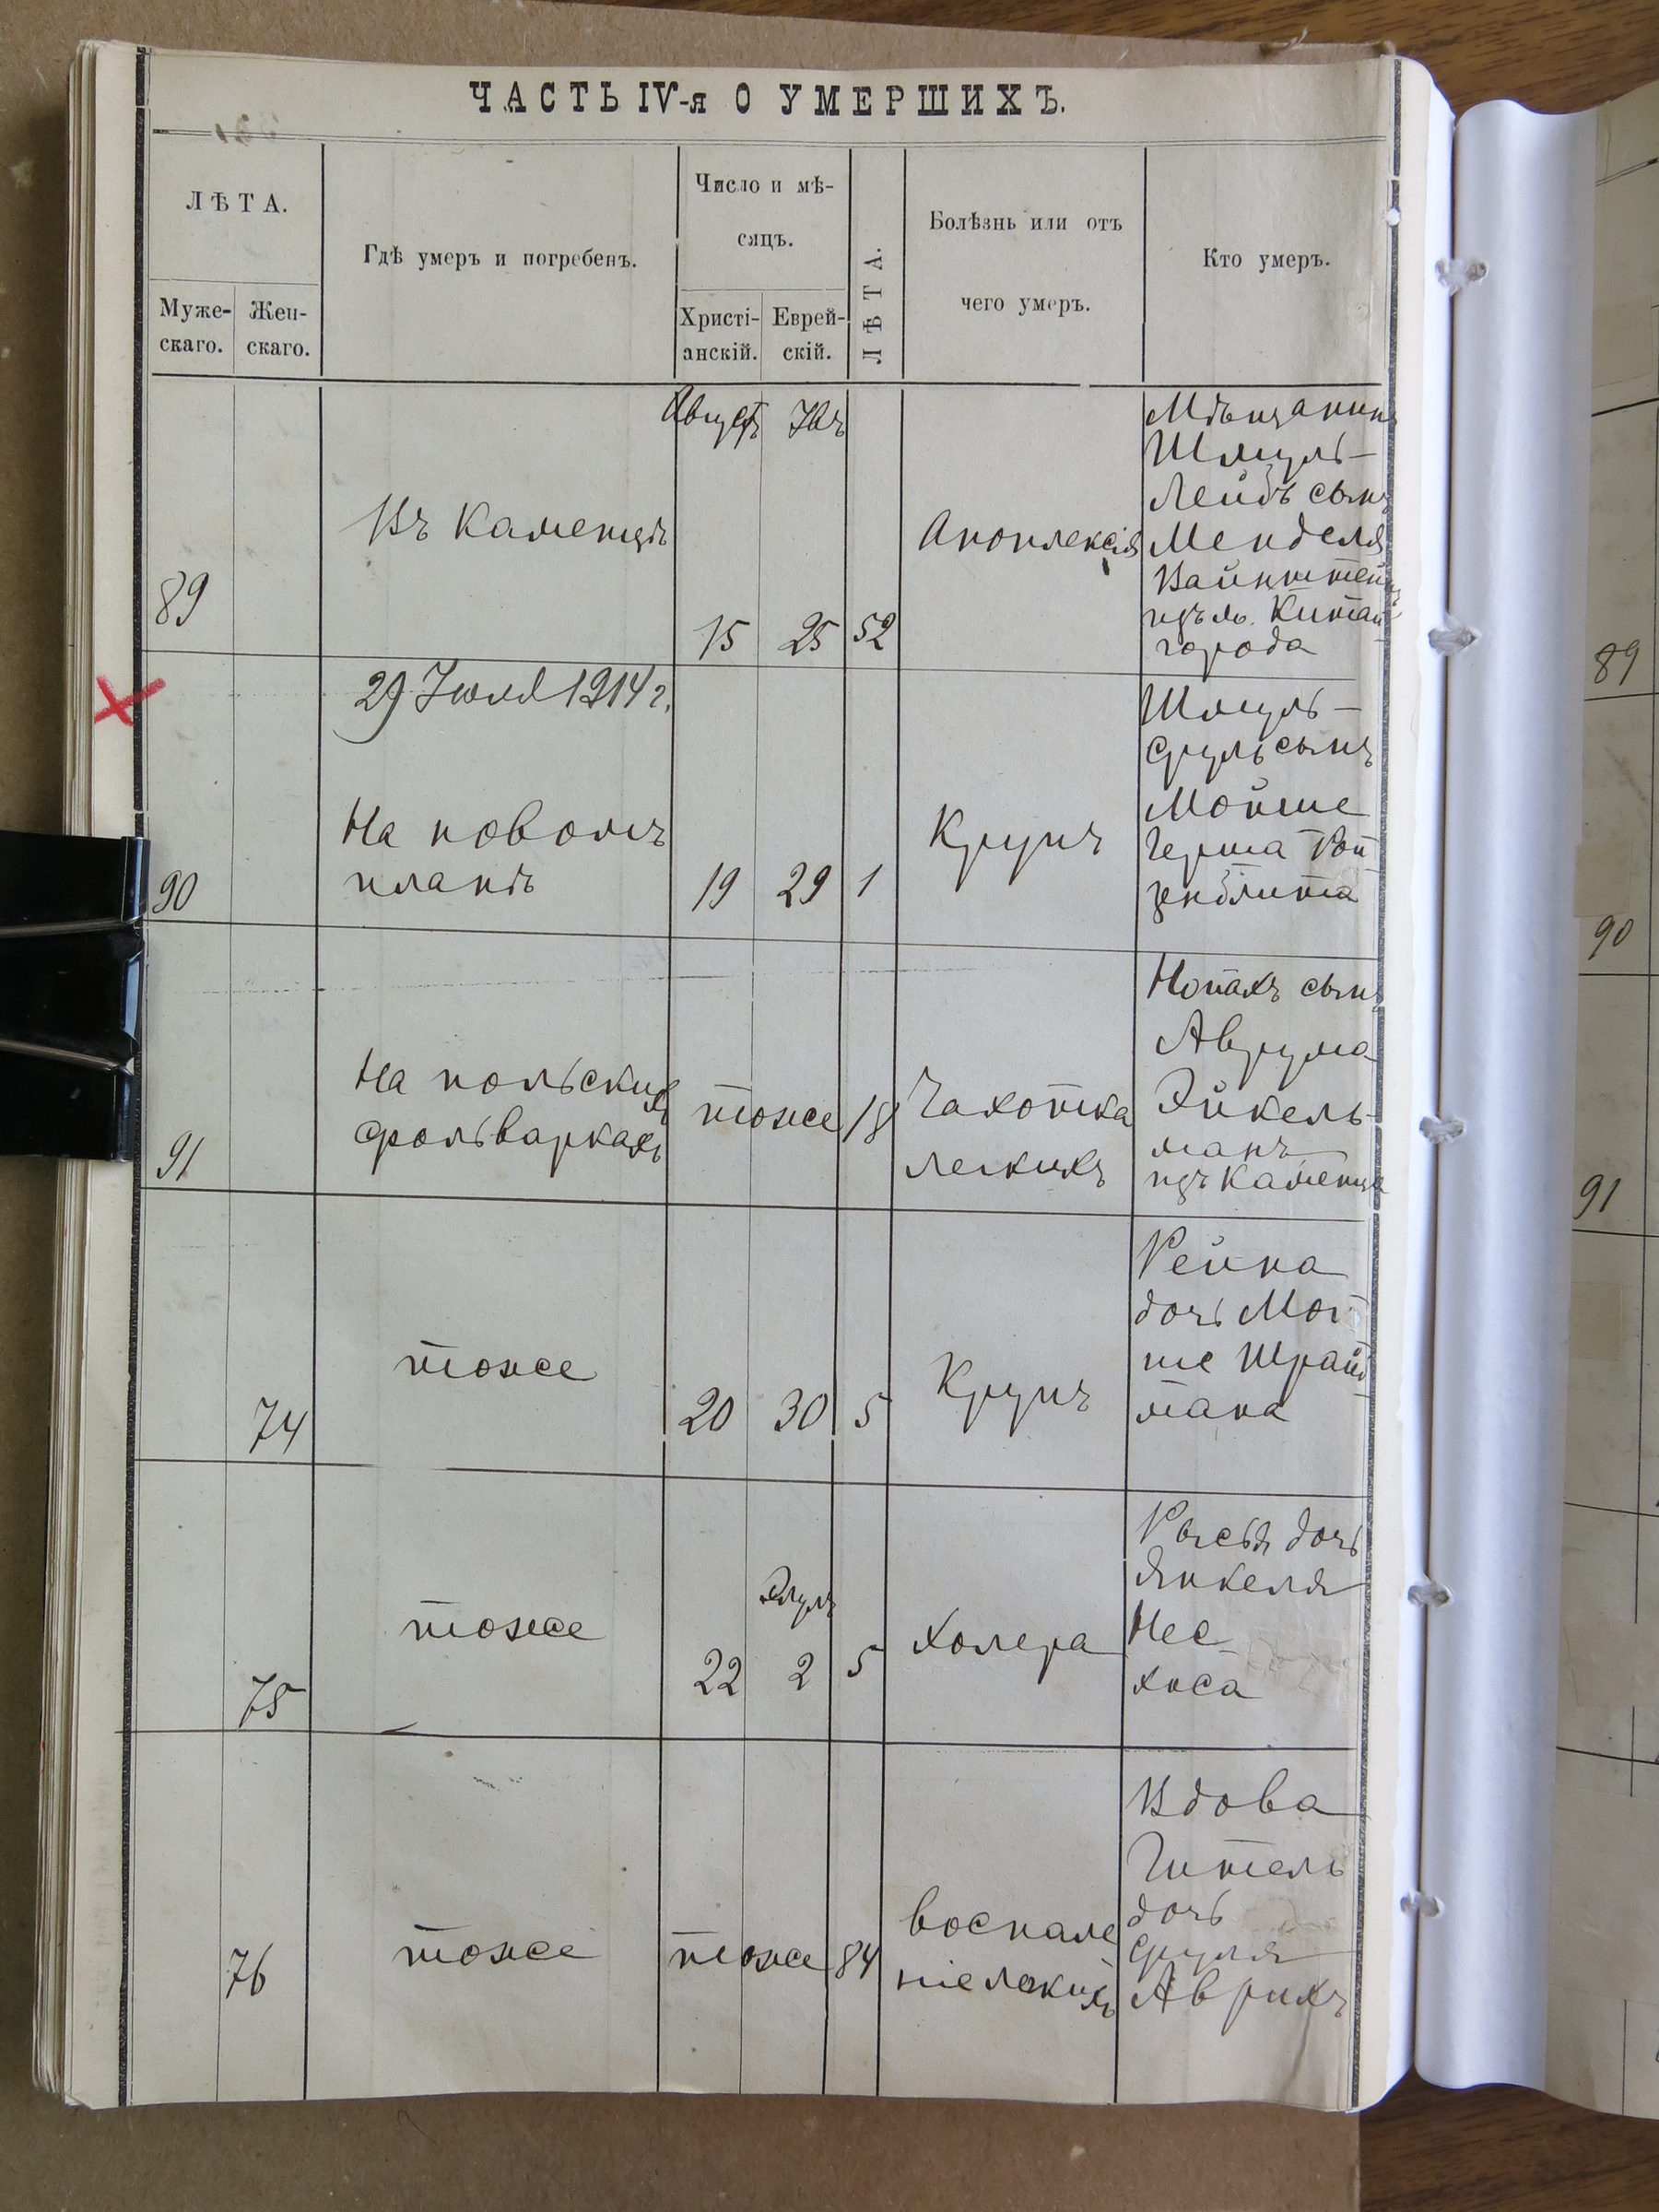 ЧАСТЬ IV-я О УМЕРШИХЪ.
ЛѢТА.
Муже-
скаго.
Жен-
скаго.
Гдѣ умеръ и погребенъ.
Число и мѣ-
сяцъ.
Христі-
анскій.
Еврей-
скій.
ЛѢТА.
Болѣзнь или отъ
чего умеръ.
Кто умеръ.
89
Въ Каменцѣ
Августъ
15
25
52
Апоплексія
Мѣщанинъ
Шмуль-
Лейбъ сынъ
Менделя
Вайнштейнъ
изъ м. Китай
города
29 Іюля 1914 г.
90
На новомъ
планѣ
19
29
1
Крупъ
Шмуль-
Сруль сынъ
Мойше
Герша
91
На польскихъ
фольваркахъ
тоже
18
Чахотка
легкихъ
сынъ
Аврума
Эйкель-
манъ
изъ Каменца
74
тоже
20
30
5
Крупъ
Рейна
дочь Мой
ше Шрай
мана
75
тоже
22
Элулъ
2
5
Холера
Рысья дочь
Янкеля
Нес
хиса
76
тоже
тоже
84
воспале
ніе легкихъ
Вдова
Гитель
дочь
Сруля
Аврихъ
89
90
91